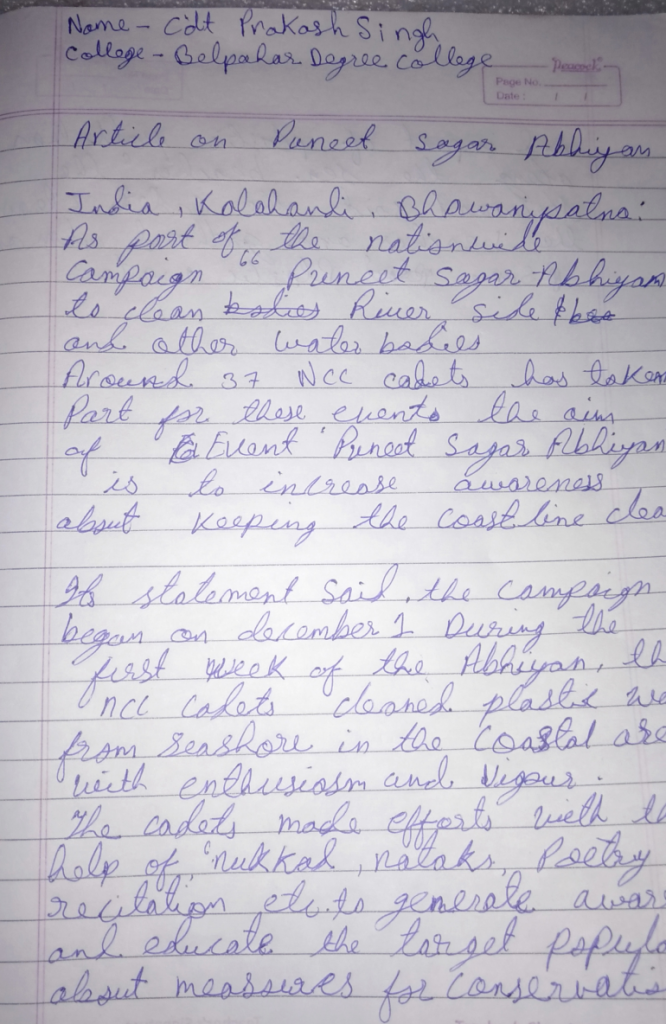 Name - Cdt Prakash Singh
College - Belpahar Degree College
Page No.
Date : / /
Article on Puneet Sagar Abhiyan
India, Kalahandi, Bhawanipatna:
As part of the nationwide
Campaign "Puneet Sagar Abhiyan
to clean bodies River side
and other water bodies
Around 37 NCC cadets has taken
Part for these events the aim
of Event 'Puneet Sagar Abhiyan
is to increase awareness
about keeping the coastline clea
Its statement said, the campaign
began on december 1 During the
first week of the Abhiyan, th
ncc cadets cleaned plastic wa
from seashore in the coastal are
with enthusiasm and Vigour.
The cadets made efforts with th
help of 'nukkad, nataks, Poetry
recitation etc. to generate awar
and educate the target popula
about meassures for conservatio